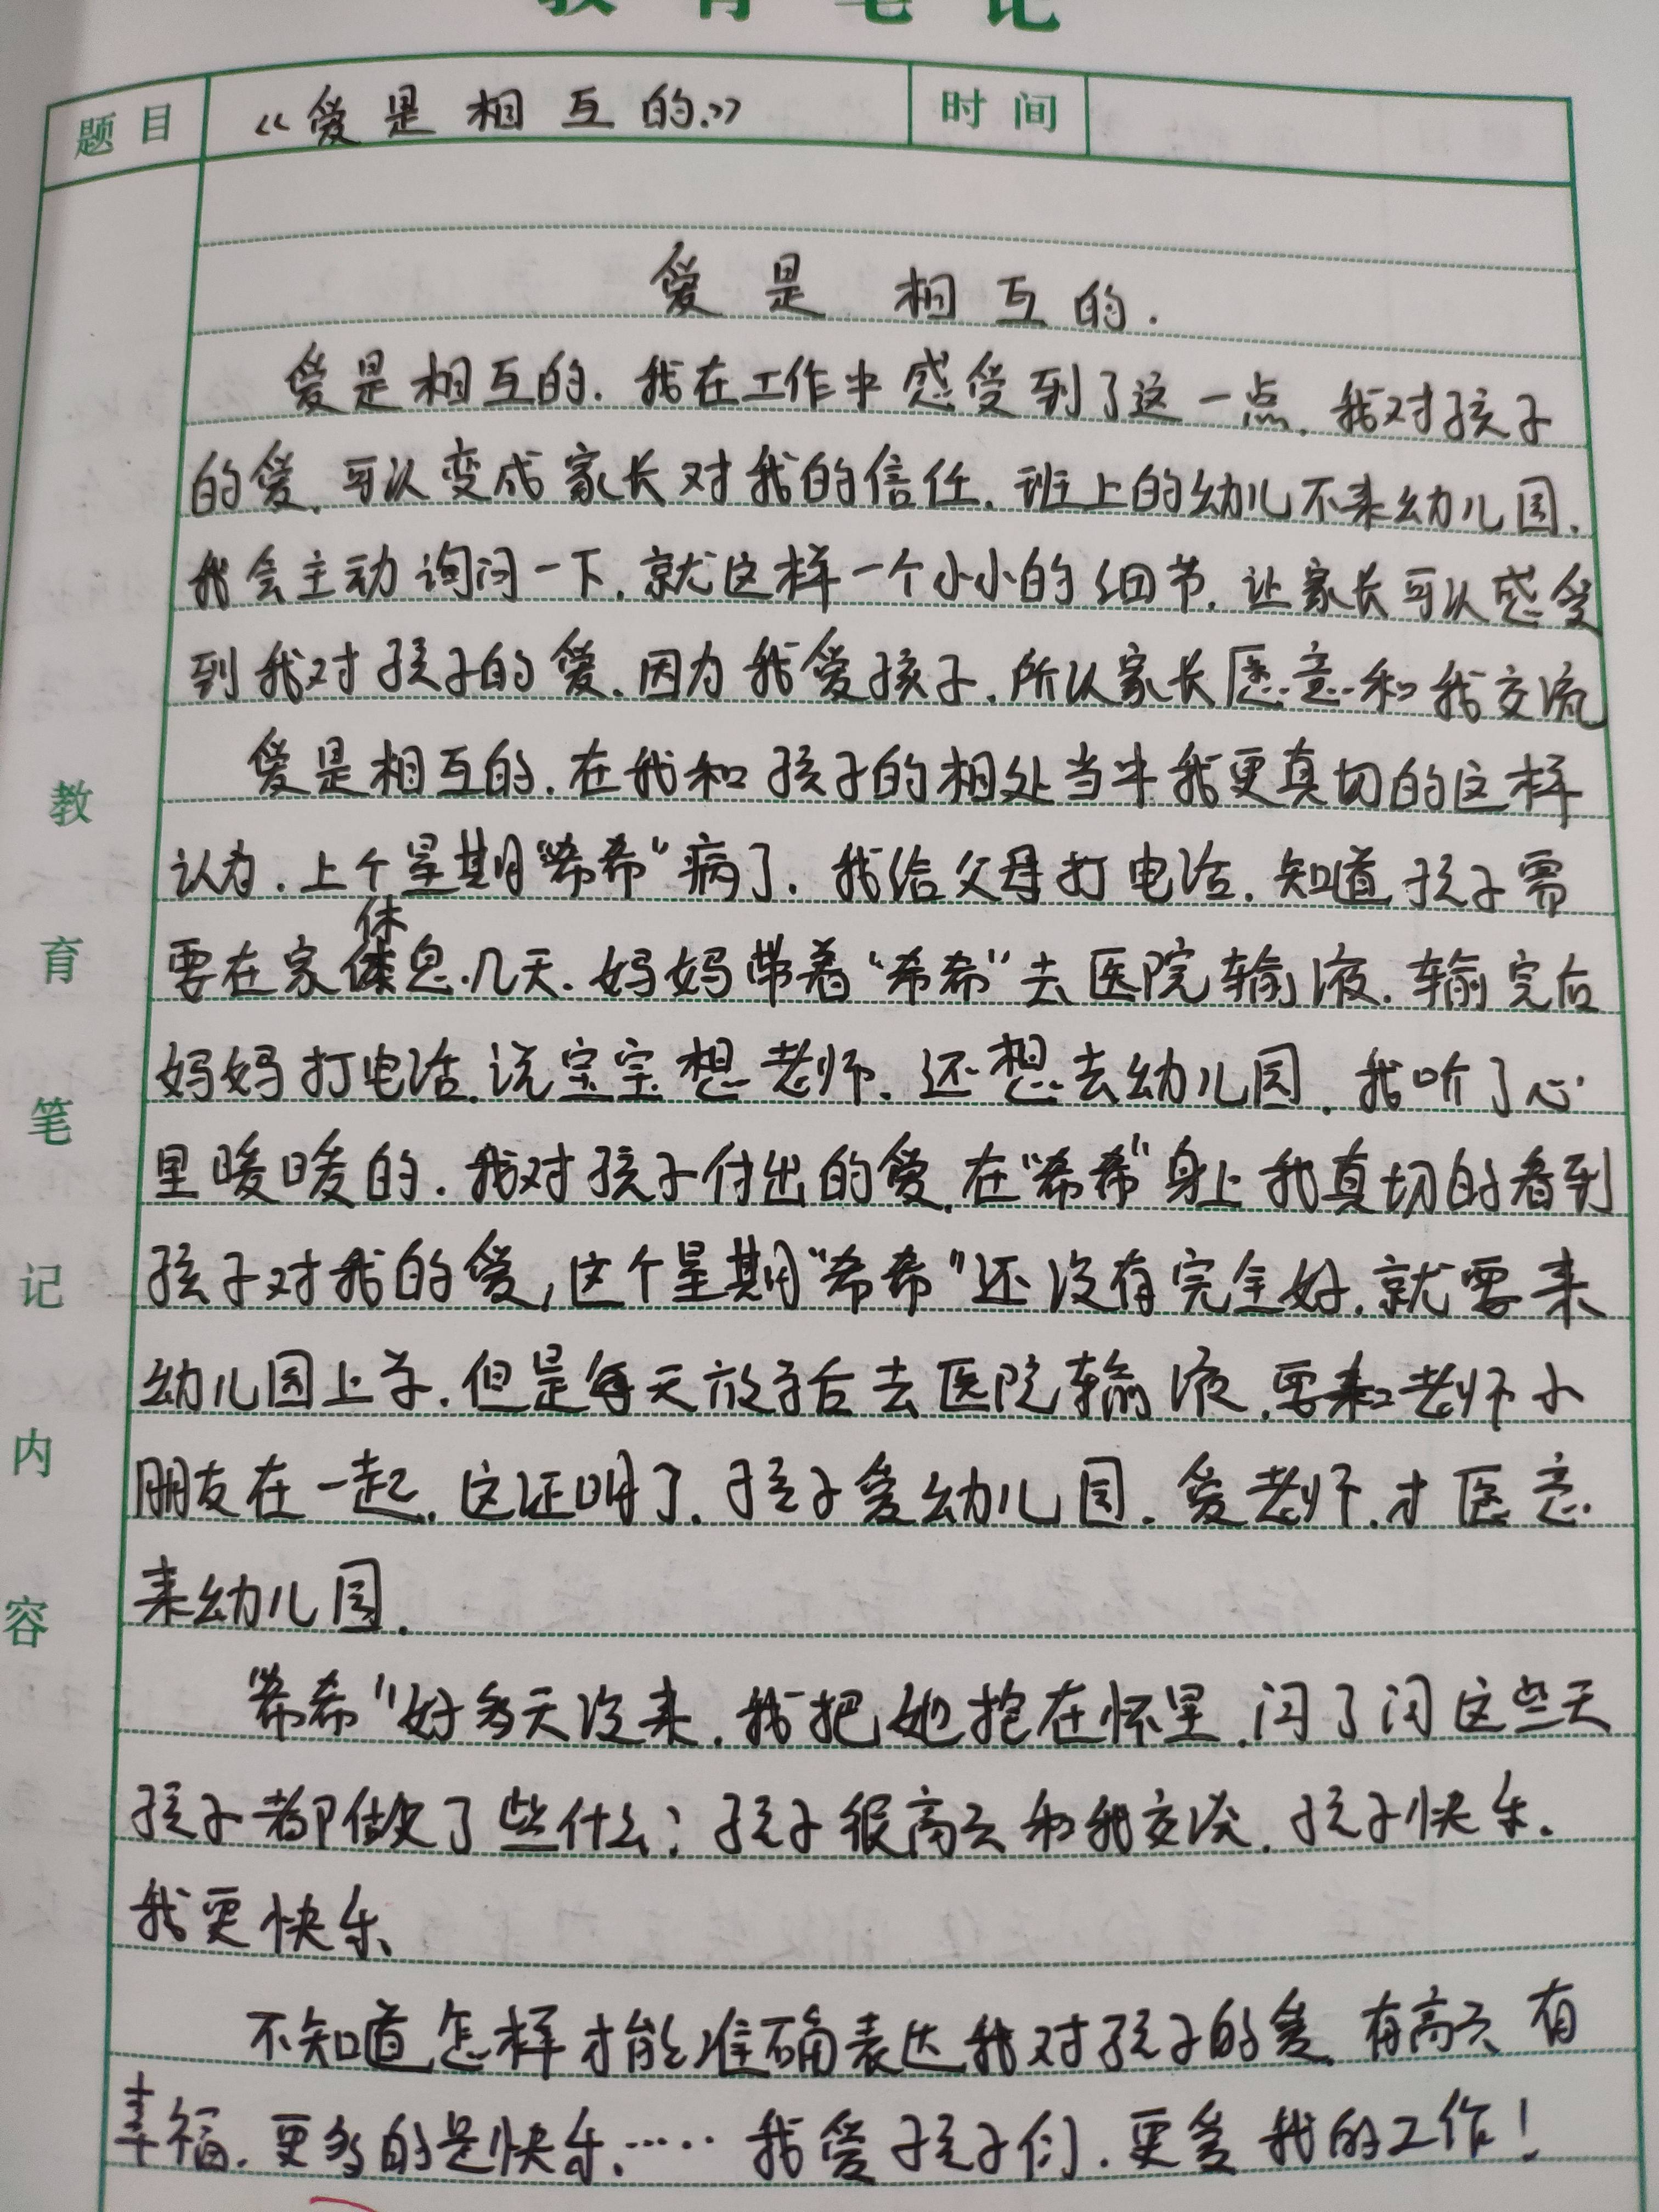 教育笔记
题目 《爱是相互的.》 时间
爱是相互的.
爱是相互的.我在工作中感受到了这一点.我对孩子
的爱.可以变成家长对我的信任.班上的幼儿不来幼儿园.
我会主动询问一下.就这样一个小小的细节.让家长可以感受
到我对孩子的爱.因为我爱孩子.所以家长愿意和我交流
爱是相互的.在我和孩子的相处当中我更真切的这样
认为.上个星期“希希”病了.我给父母打电话.知道孩子需
要在家休息几天.妈妈带着“希希”去医院输液.输完后
妈妈打电话.说宝宝想老师.还想去幼儿园.我听了心
里暖暖的.我对孩子付出的爱.在“希希”身上我真切的看到
孩子对我的爱,这个星期“希希”还没有完全好.就要来
幼儿园上学.但是每天放学后去医院输液.要和老师小
朋友在一起.这证明了.孩子爱幼儿园.爱老师.才愿意
来幼儿园.
“希希”好多天没来.我把她抱在怀里.问了问这些天
孩子都做了些什么;孩子很高兴和我交谈.孩子快乐.
我更快乐.
不知道怎样才能准确表达我对孩子的爱.有高兴有
幸福.更多的是快乐.……我爱孩子们.更爱我的工作!
教育笔记内容